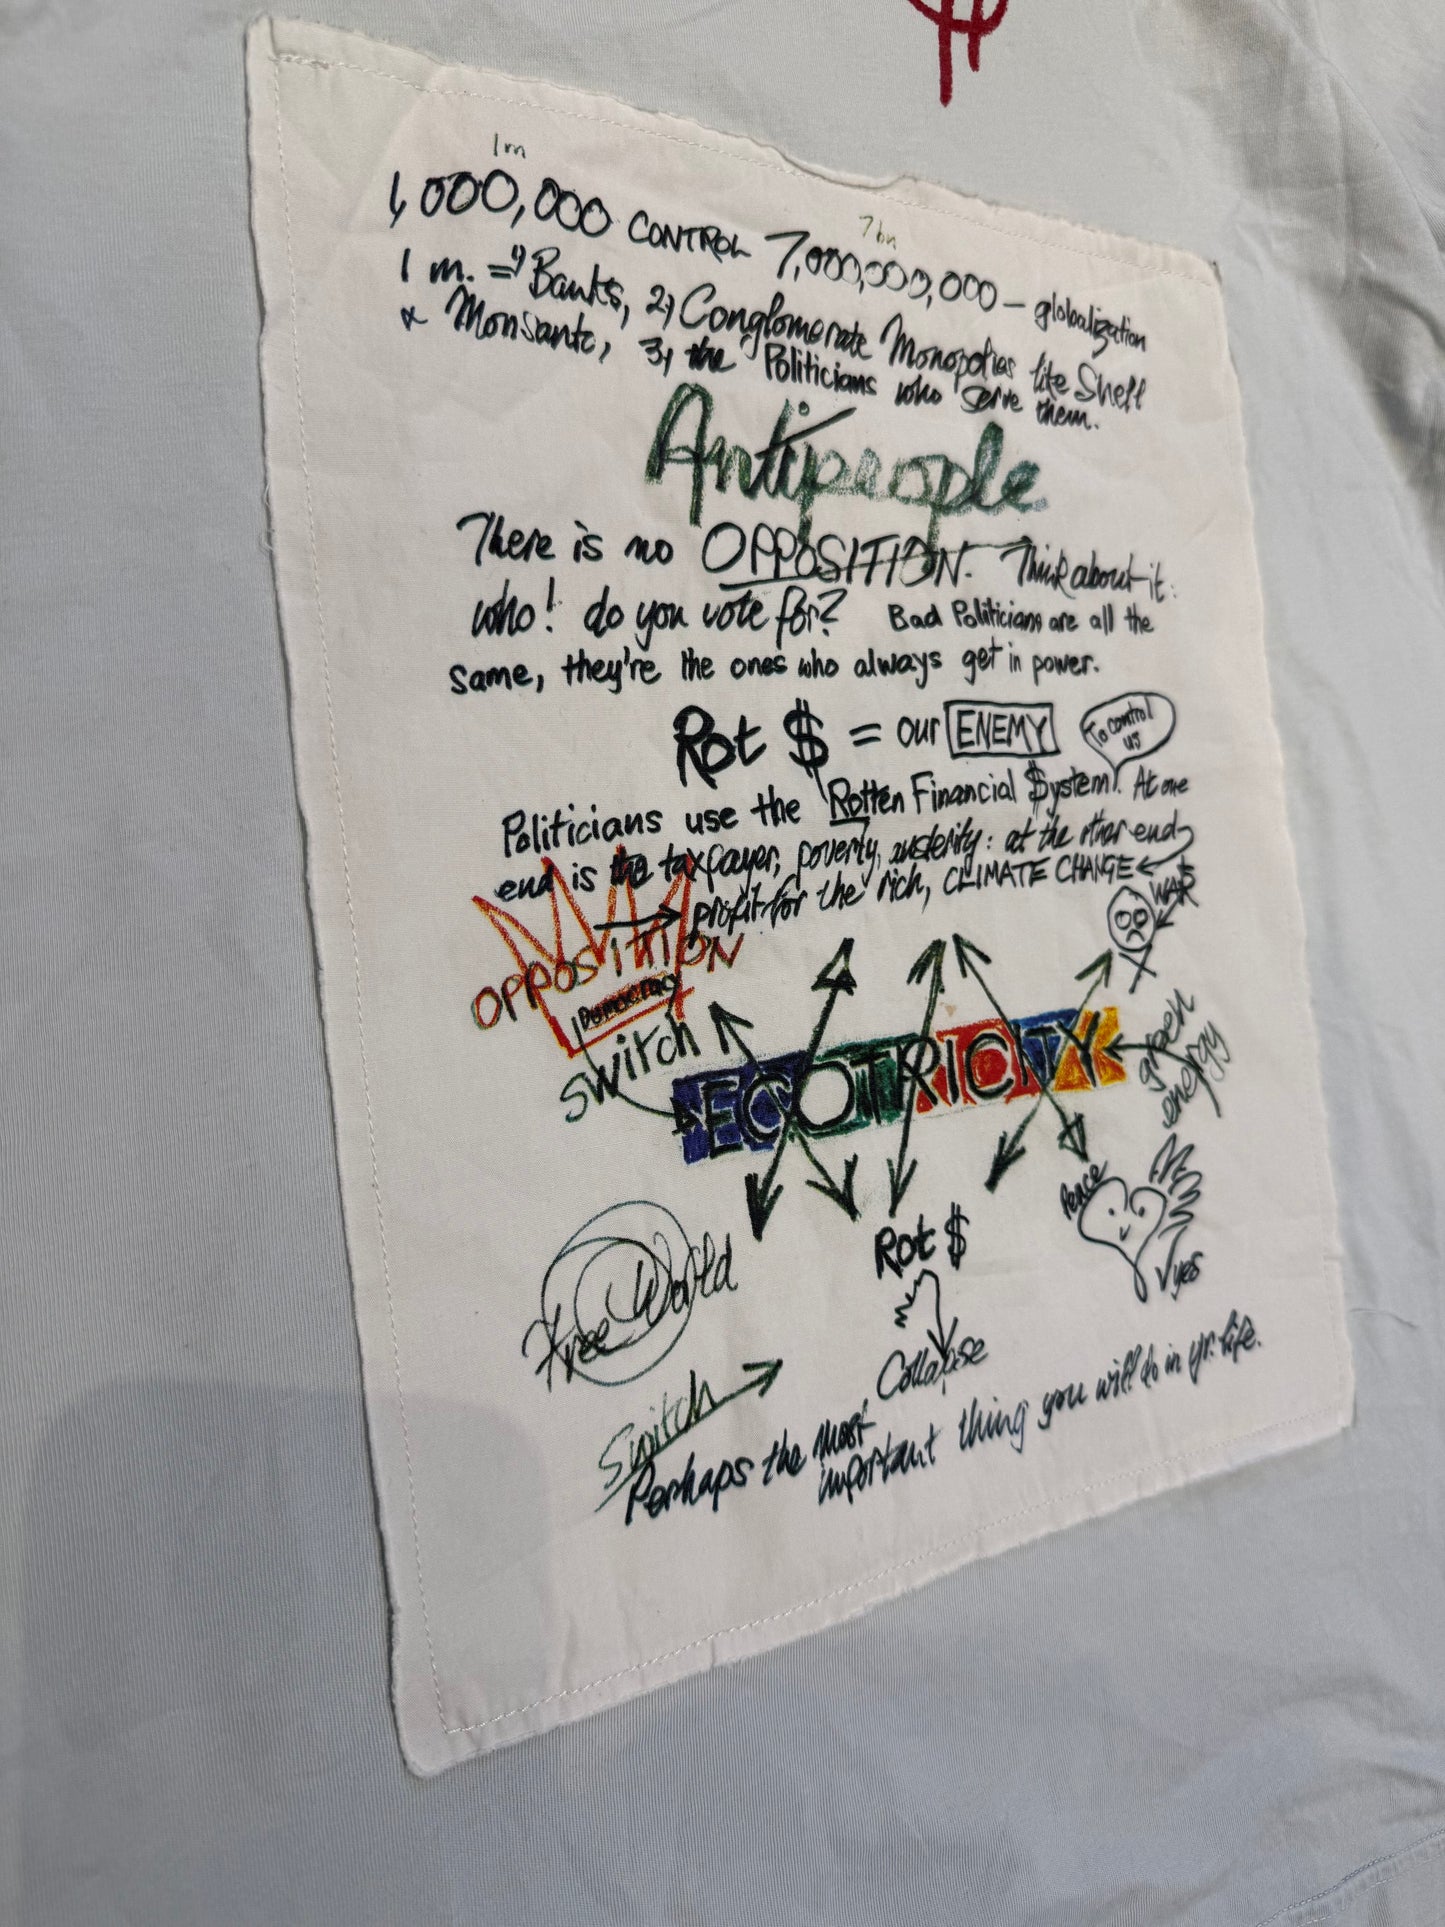 1m
1,000,000 CONTROL 7,000,000,000 – globalization
7bn
1 m. = 1) Banks, 2) Conglomerate Monopolies like Shell
& Monsanto, 3) the Politicians who serve them.
Antipeople
There is no OPPOSITION. Think about it:
who! do you vote for? Bad Politicians are all the
same, they're the ones who always get in power.
Rot $ = our ENEMY
To control
us
Politicians use the Rotten Financial $ystem. At one
end is the taxpayer, poverty, austerity: at the other end
profit for the rich, CLIMATE CHANGE
WAR
OPPOSITION
Democracy
switch
ECOTRICITY
green
energy
Peace
yes
Rot $
Collapse
Free World
Switch
Perhaps the most
important thing you will do in yr. life.